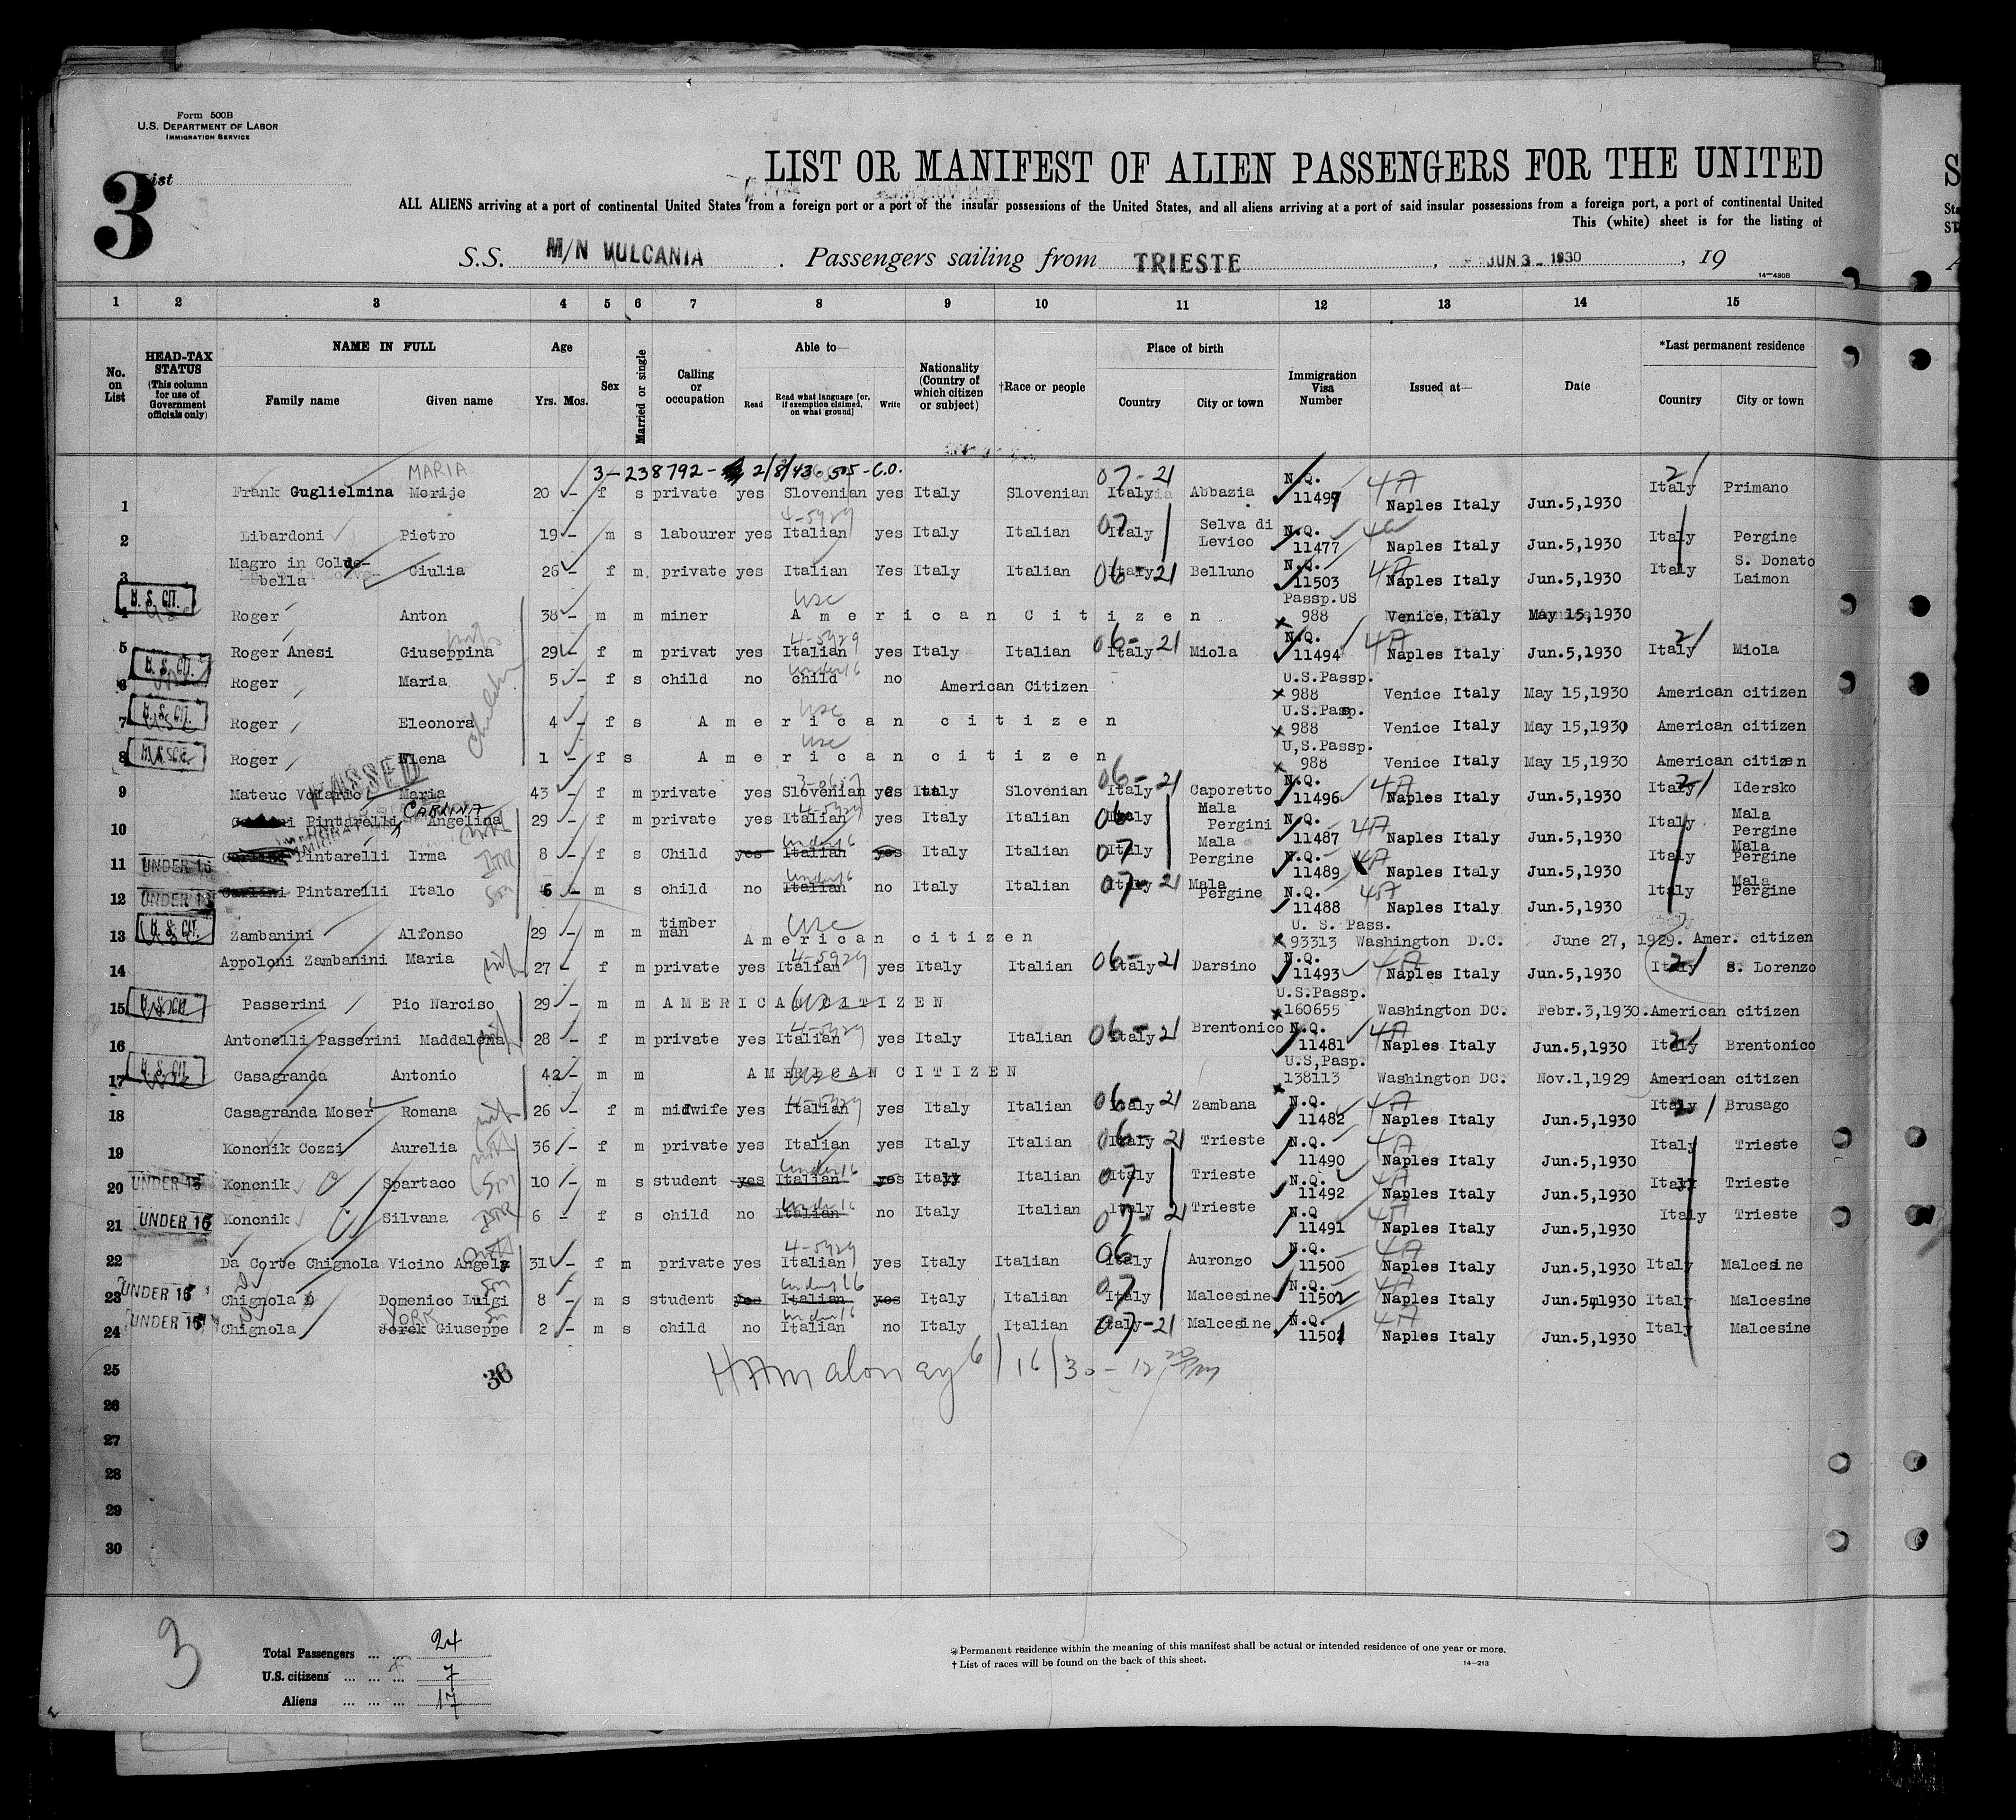 Form 500B
U.S. DEPARTMENT OF LABOR
IMMIGRATION SERVICE
3
List
LIST OR MANIFEST OF ALIEN PASSENGERS FOR THE UNITED
ALL ALIENS arriving at a port of continental United States from a foreign port or a port of the insular possessions of the United States, and all aliens arriving at a port of said insular possessions from a foreign port, a port of continental United
This (white) sheet is for the listing of
S.S. M/N VULCANIA. Passengers sailing from TRIESTE, JUN 3 - 1930, 19
14-430B
1 2 3 4 5 6 7 8 9 10 11 12 13 14 15
No. on List
HEAD-TAX STATUS (This column for use of Government officials only)
NAME IN FULL
Family name Given name
Age
Yrs. Mos.
Sex
Married or single
Calling or occupation
Able to—
Read Read what language [or, if exemption claimed, on what ground] Write
Nationality (Country of which citizen or subject)
†Race or people
Place of birth
Country City or town
Immigration Visa Number
Issued at—
Date
*Last permanent residence
Country City or town
MARIA 3-238792- 2/8/43 505-C.O. 07-21
1 Frank Guglielmina Merije 20 - f s private yes Slovenian yes Italy Slovenian Italy Abbazia N.Q. 11497 4A Naples Italy Jun.5,1930 Italy Primano
2 Libardoni Pietro 19 - m s labourer yes Italian 4-5929 yes Italy Italian 07 Italy Selva di Levico N.Q. 11477 Naples Italy Jun.5,1930 Italy Pergine
3 Magro in Colde-bella Giulia 26 - f m. private yes Italian Yes Italy Italian 06-21 Italy Belluno N.Q. 11503 4A Naples Italy Jun.5,1930 Italy S. Donato Laimon
4 U.S. CIT. Roger Anton 38 - m m miner USC American Citizen Passp.US 988 Venice, Italy May 15,1930
5 Roger Anesi Giuseppina 29 - f m privat yes Italian 4-5929 yes Italy Italian 06-21 Italy Miola N.Q. 11494 4A Naples Italy Jun.5,1930 Italy Miola
6 U.S. CIT. Roger Maria 5 - f s child no child under 16 no American Citizen U.S.Passp. 988 Venice Italy May 15,1930 American citizen
7 U.S. CIT. Roger Eleonora 4 - f s USC American citizen U.S.Pasp. 988 Venice Italy May 15,1930 American citizen
8 Roger Elena 1 - f s USC American citizen U,S.Passp. 988 Venice Italy May 15,1930 American citizen
children
PASSED
9 Mateuc Maria 43 - f m private yes Slovenian yes Italy Slovenian 06-21 Italy Caporetto N.Q. 11496 4A Naples Italy Jun.5,1930 Italy Idersko
10 Pintarelli Angelina CARLINA 29 - f m private yes Italian 4-5929 yes Italy Italian 06 Italy Mala Pergini N.Q. 11487 4A Naples Italy Jun.5,1930 Italy Mala Pergine
11 UNDER 16 Carlini Pintarelli Irma 8 - f s Child yes Italian under 16 yes Italy Italian 07 Italy Mala Pergine N.Q. 11489 4A Naples Italy Jun.5,1930 Italy Mala Pergine
12 UNDER 16 Carlini Pintarelli Italo Son 6 - m s child no Italian under 16 no Italy Italian 07-21 Italy Mala Pergine N.Q. 11488 Naples Italy Jun.5,1930 Italy Mala Pergine
13 U.S. CIT. Zambanini Alfonso 29 - m m timber man USC American citizen U. S. Pass. 93313 Washington D.C. June 27, 1929. Amer. citizen
14 Appoloni Zambanini Maria 27 - f m private yes Italian 4-5929 yes Italy Italian 06-21 Italy Darsino N.Q. 11493 4A Naples Italy Jun.5,1930 Italy S. Lorenzo
15 U.S. CIT. Passerini Pio Narciso 29 - m m AMERICAN CITIZEN U.S.Passp. 160655 Washington DC. Febr.3,1930. American citizen
16 Antonelli Passerini Maddalena 28 - f m private yes Italian 4-5929 yes Italy Italian 06-21 Italy Brentonico N.Q. 11481 4A Naples Italy Jun.5,1930 Italy Brentonico
17 U.S. CIT. Casagranda Antonio 42 - m m AMERICAN CITIZEN U.S,Pasp. 138113 Washington DC. Nov.1,1929 American citizen
18 Casagranda Moser Romana 26 - f m midwife yes Italian 4-5929 yes Italy Italian 06-21 Italy Zambana N.Q. 11482 4A Naples Italy Jun.5,1930 Italy Brusago
19 Koncnik Cozzi Aurelia 36 - f m private yes Italian yes Italy Italian 06-21 Italy Trieste N.Q. 11490 4A Naples Italy Jun.5,1930 Italy Trieste
20 UNDER 16 Koncnik Spartaco Son 10 - m s student yes Italian under 16 yes Italy Italian 07 Italy Trieste N.Q. 11492 4A Naples Italy Jun.5,1930 Italy Trieste
21 UNDER 16 Koncnik Silvana 6 - f s child no Italian under 16 no Italy Italian 07-21 Italy Trieste N.Q. 11491 4A Naples Italy Jun.5,1930 Italy Trieste
22 Da Corte Chignola Vicino Angela 31 - f m private yes Italian 4-5929 yes Italy Italian 06 Italy Auronzo N.Q. 11500 4A Naples Italy Jun.5,1930 Italy Malcesine
23 UNDER 16 Chignola Domenico Luigi Son 8 - m s student yes Italian under 16 yes Italy Italian 07 Italy Malcesine N.Q. 11502 4A Naples Italy Jun.5,1930 Italy Malcesine
24 UNDER 16 Chignola Jorek YORK Giuseppe 2 - m s child no Italian under 16 no Italy Italian 07-21 Italy Malcesine N.Q. 11501 4A Naples Italy Jun.5,1930 Italy Malcesine
25 36 Maloney 6/16/30 - 12
26
27
28
29
30
3
Total Passengers ... ... 24
U.S. citizens ... ... ... 7
Aliens ... ... ... 17
*Permanent residence within the meaning of this manifest shall be actual or intended residence of one year or more.
† List of races will be found on the back of this sheet.
14-213